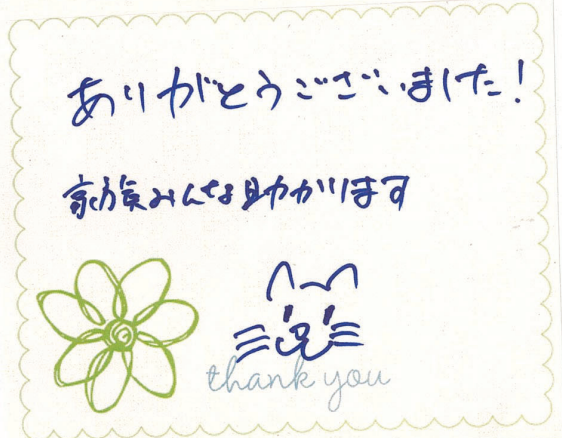 ありがとうございました!
家族みんな助かります
thank you